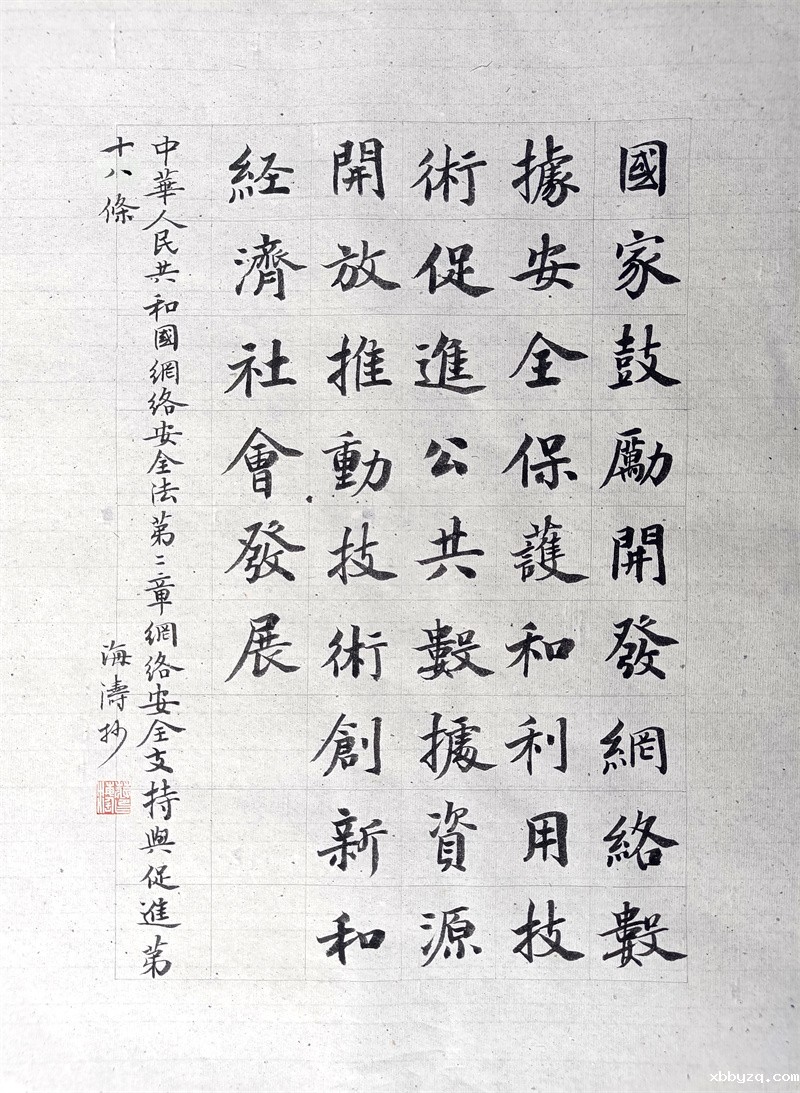 國家鼓勵開發網絡數
據安全保護和利用技
術促進公共數據資源
開放推動技術創新和
経濟社會發展
中華人民共和國網絡安全法第二章網絡安全支持與促進第
十八條
海濤抄
xbbyzq.com